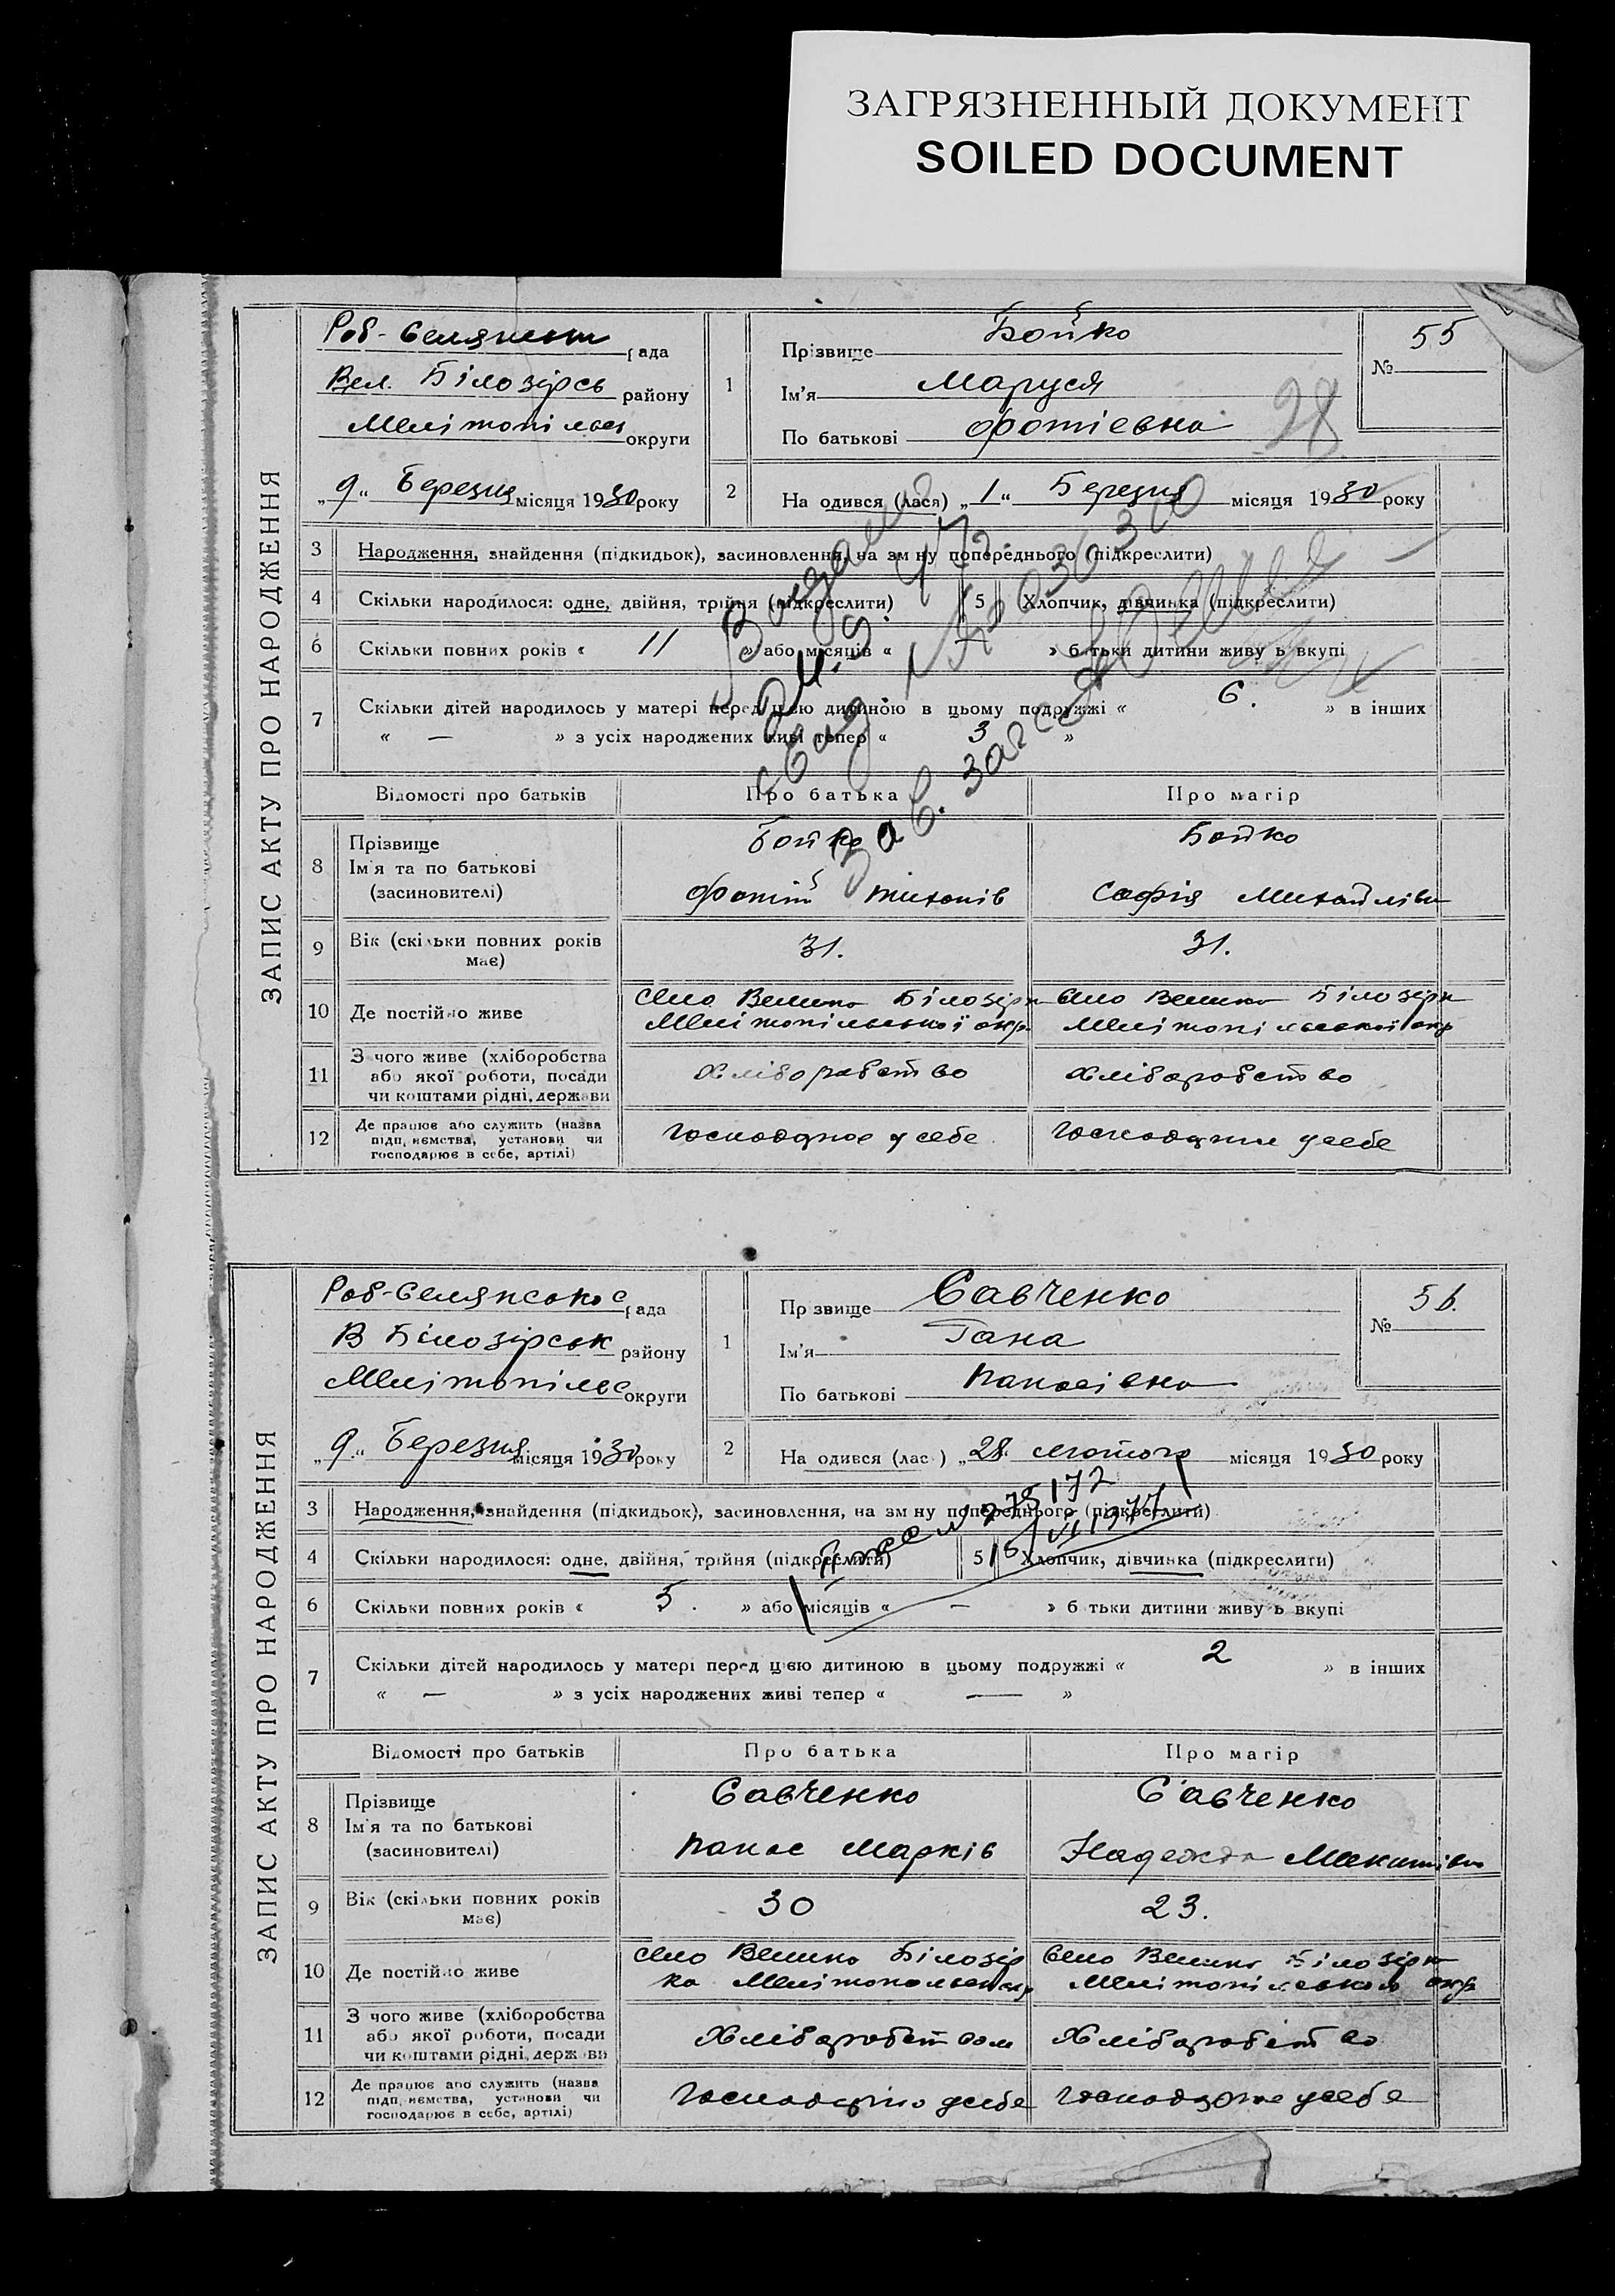 ЗАГРЯЗНЕННЫЙ ДОКУМЕНТ
SOILED DOCUMENT
ЗАПИС АКТУ ПРО НАРОДЖЕННЯ
Роб-Селянськ рада
Вел. Білозірсь району
Мелітопільс округи
„9“ Березня місяця 1930 року
1
Прізвище Бойко
Ім'я Маруся
По батькові Фотіевна
№ 55
28
2
На одився (лася) „1“ Березня місяця 1930 року
3 Народження, знайдення (підкидьок), засиновлення, на зм ну попереднього (підкреслити)
4 Скільки народилося: одне, двійня, трійня (підкреслити)
5 Хлопчик, дівчинка (підкреслити)
6 Скільки повних років « 11 » або місяців « — » б тьки дитини живу ь вкупі
7 Скільки дітей народилось у матері перед цією дитиною в цьому подружжі « 6. » в інших
« — » з усіх народжених живі тепер « 3 »
Відомості про батьків Про батька Про матір
8 Прізвище
Ім'я та по батькові
(засиновителі)
Бойко
Фотій Тихонів
Бойко
Софія Михайлівн
9 Вік (скільки повних років має)
31.
31.
10 Де постійно живе
Село Велика Білозірк
Мелітопільської окр
Село Велика Білозірк
Мелітопільської окр
11 З чого живе (хліборобства
або якої роботи, посади
чи коштами рідні, держави
Хліборобство
Хліборобство
12 Де працює або служить (назва
підприємства, установи чи
господарює в себе, артілі)
Господарює у себе
Господарює у себе
ЗАПИС АКТУ ПРО НАРОДЖЕННЯ
Роб-Селянської рада
В Білозірськ району
Мелітопільс округи
„9“ Березня місяця 1930 року
1
Пр звище Савченко
Ім'я Гана
По батькові Панасівна
№ 56.
2
На одився (лас ) „28. лютого місяця 1930 року
3 Народження, знайдення (підкидьок), засиновлення, на зм ну попереднього (підкреслити)
4 Скільки народилося: одне, двійня, трійня (підкреслити)
5 Хлопчик, дівчинка (підкреслити)
6 Скільки повних років « 5. » або місяців « — » б тьки дитини живу ь вкупі
7 Скільки дітей народилось у матері перед цією дитиною в цьому подружжі « 2 » в інших
« — » з усіх народжених живі тепер « — »
Відомості про батьків Про батька Про матір
8 Прізвище
Ім'я та по батькові
(засиновителі)
Савченко
Панас Марків
Савченко
Надежда Микитівн
9 Вік (скільки повних років має)
30
23.
10 Де постійно живе
Село Велика Білозір
ка
Село Велика Білозірк
Мелітопільської окр
11 З чого живе (хліборобства
або якої роботи, посади
чи коштами рідні, держави
Хліборобством
Хліборобство
12 Де працює або служить (назва
підприємства, установи чи
господарює в себе, артілі)
Господарює у себе
Господарює у себе